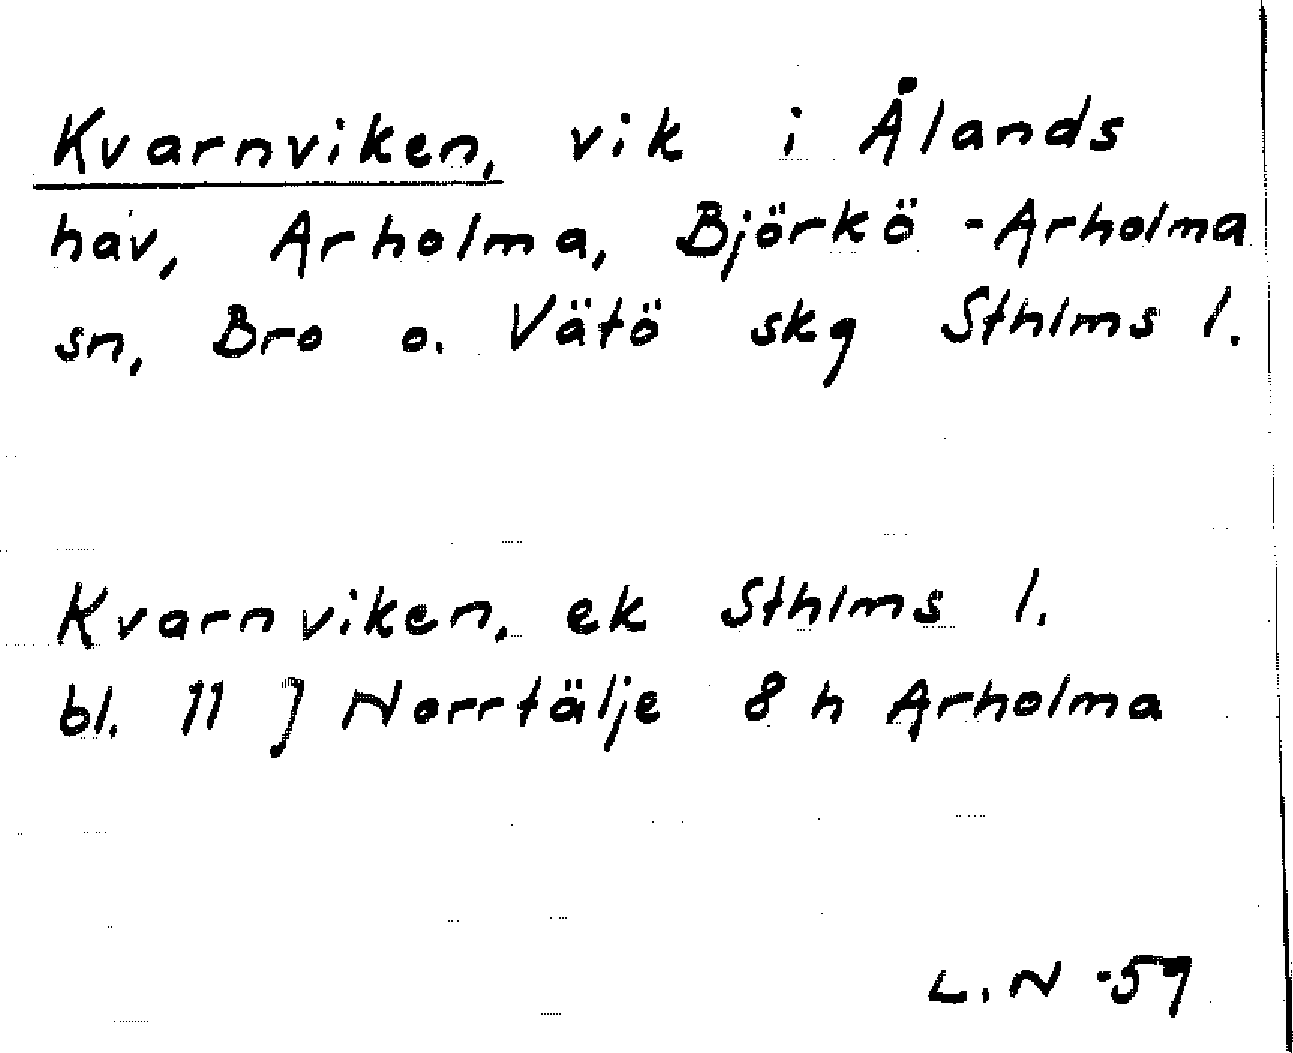 Kvarnviken, vik i Ålands
hav, Arholma, Björkö-Arholma
sn, Bro o. Vätö skg Sthlms l.
Kvarnviken, ek Sthlms l.
bl. 11 J Norrtälje 8 h Arholma
L.N -59